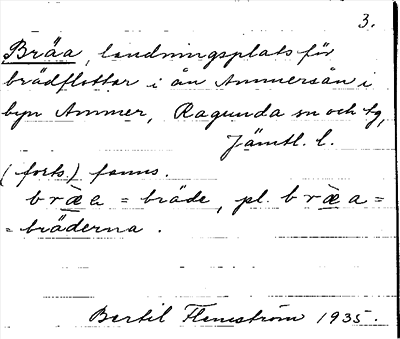 3.
Bräa, landningsplats för
brädflottar i ån Ammersån i
byn Ammer, Ragunda sn och tg,
Jämtl. l.
(forts.) fanns.
bræ̀a = bräde, pl. bræ̀a =
= bräderna.
Bertil Flemström 1935.